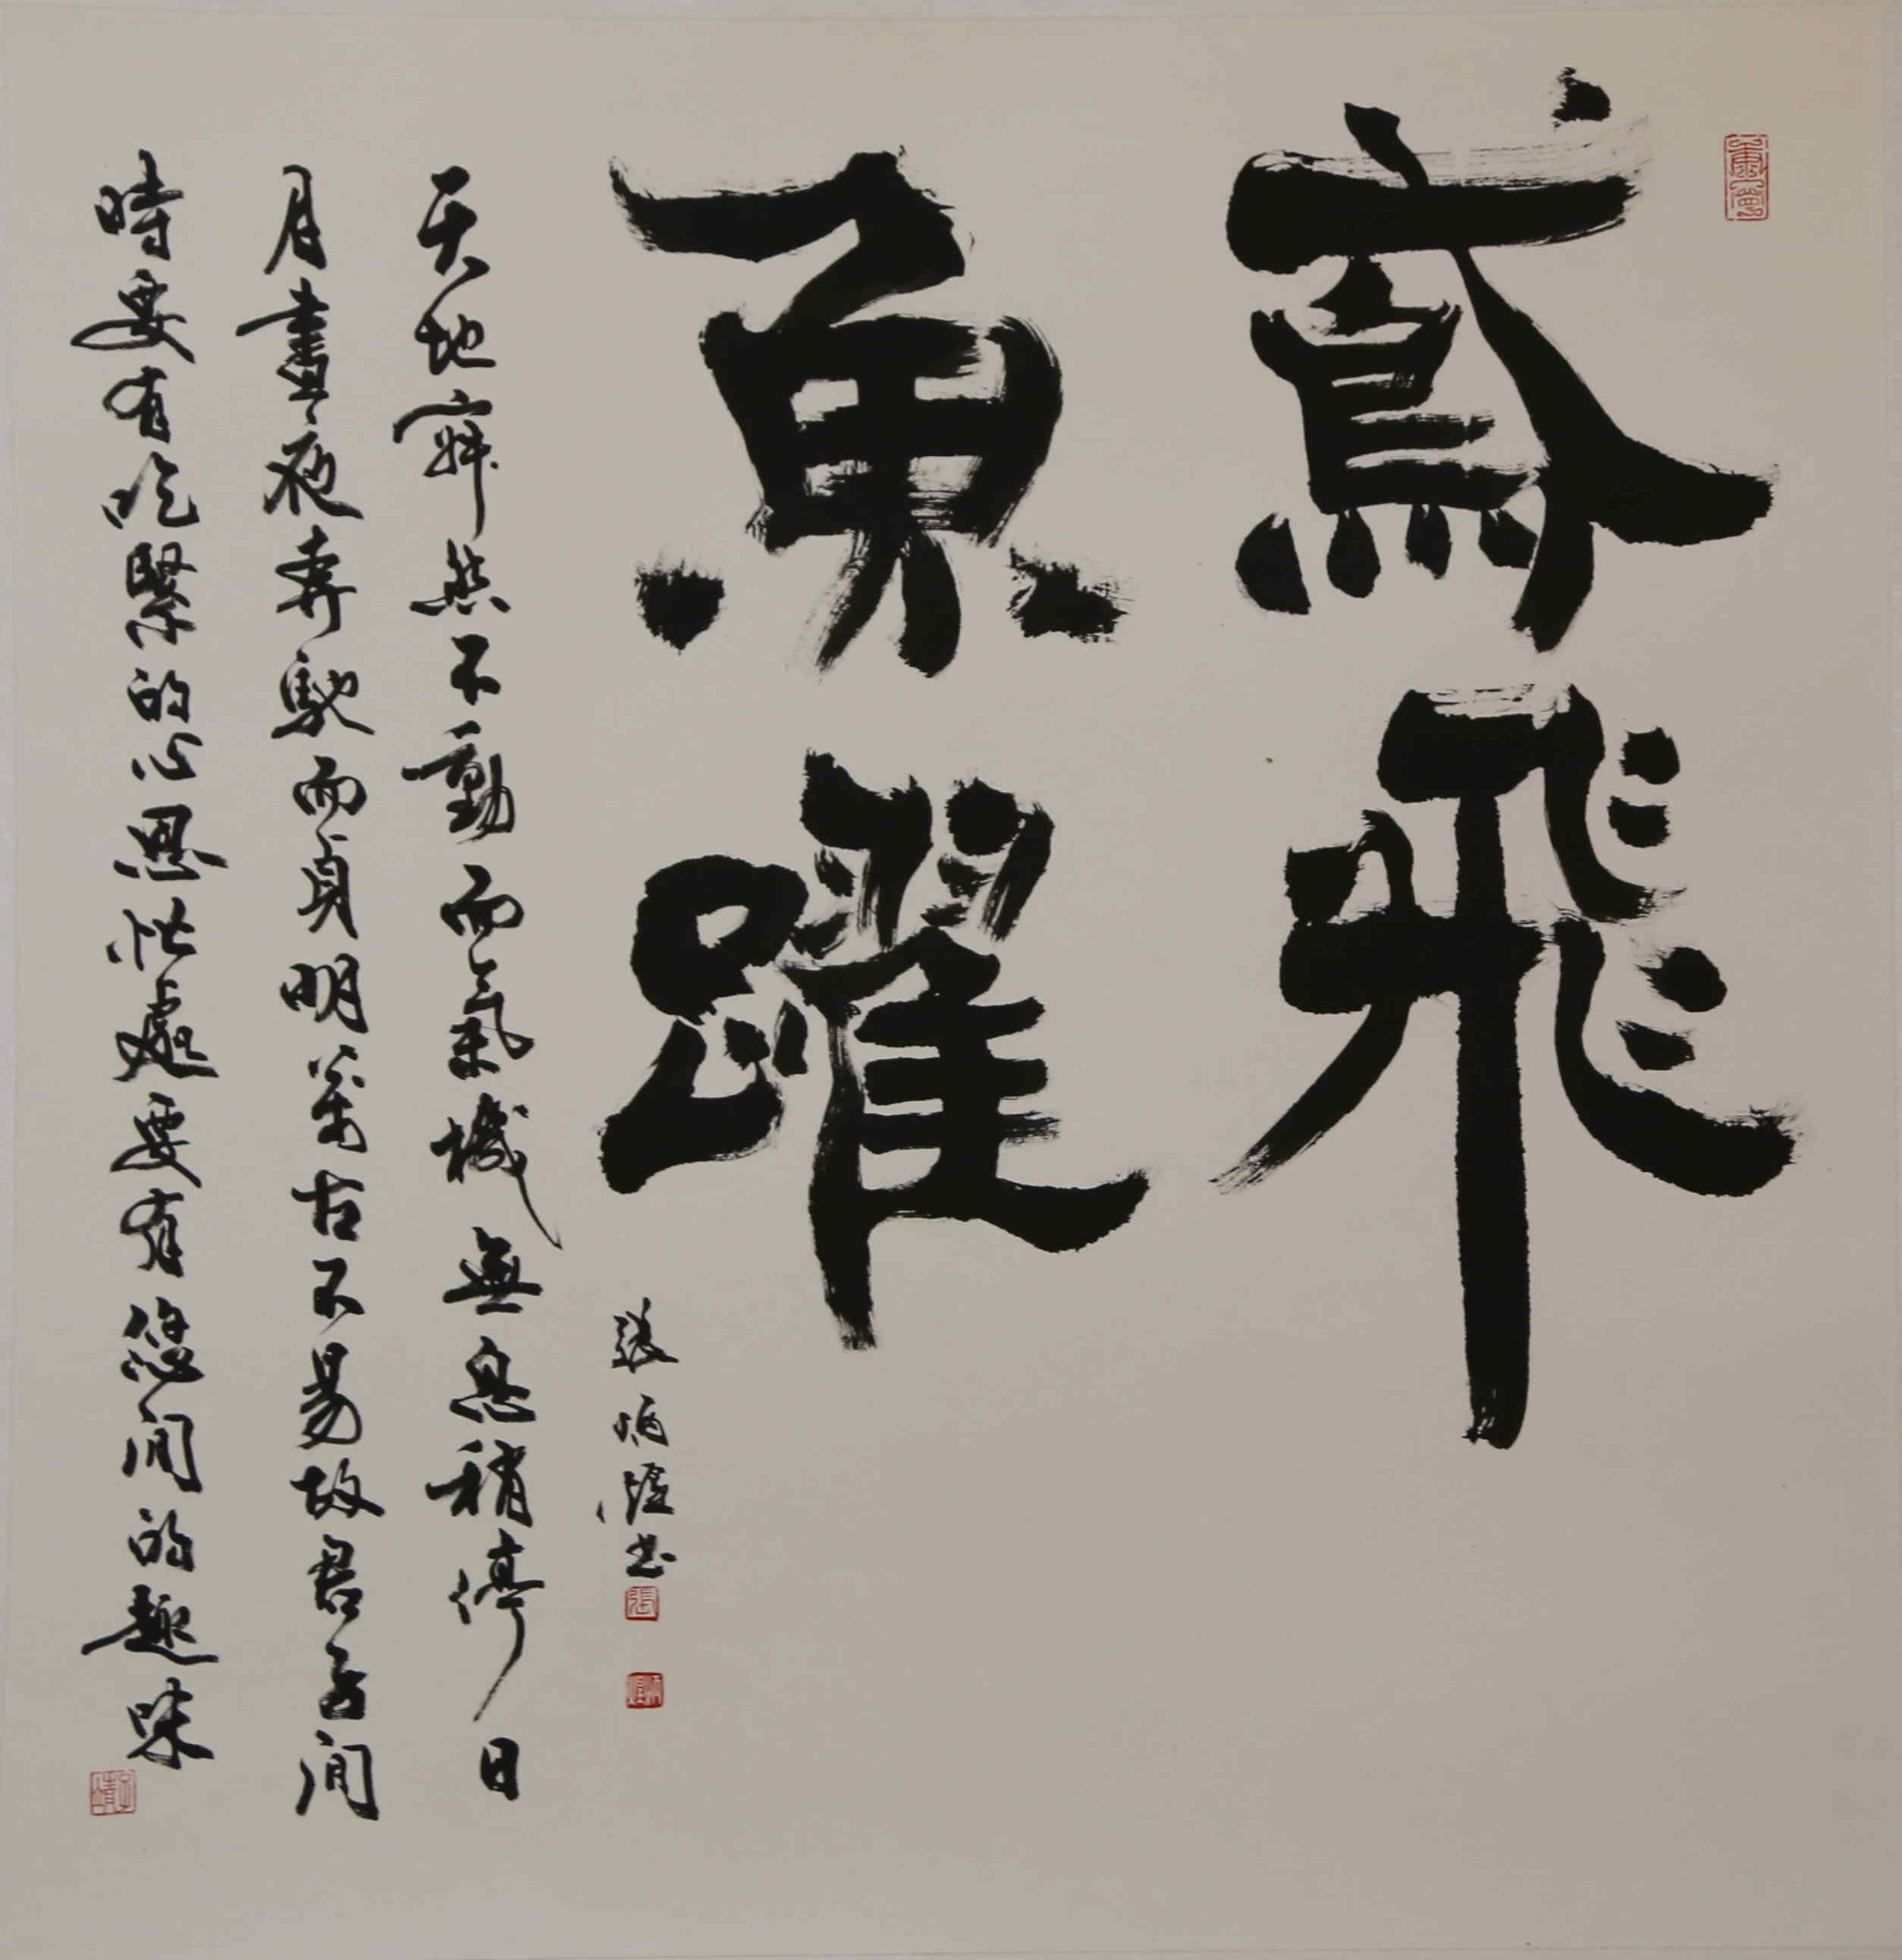 鳶飛
魚躍
張炳煌書
天地寂然不動而氣機無息稍停日
月晝夜奔馳而貞明萬古不易故君子閒
時要有吃緊的心思忙處要有悠閒的趣味